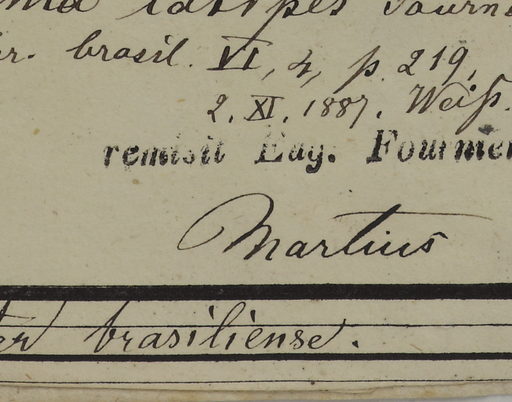 latipes Fourn
br. brasil. VI, 4, p. 219,
2. XI. 1887. Weiß.
remisit Eug. Fournier
Martius
er brasiliense.